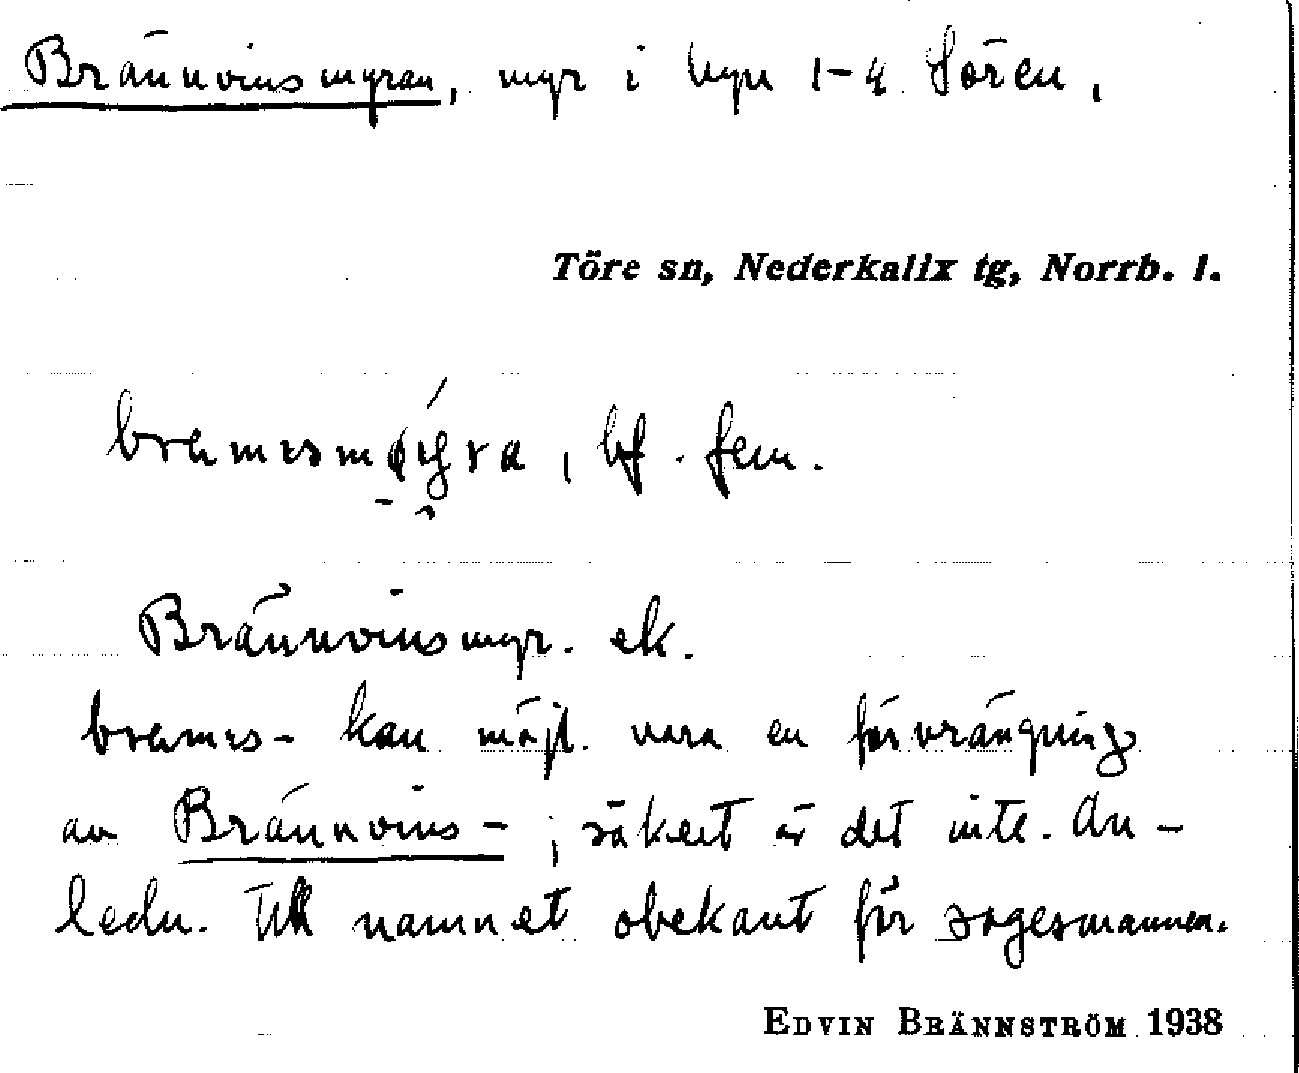 Brännvinsmyran, myr i hyn 1-4 Sören,
Töre sn, Nederkalix tg, Norrb. l.
bf. fem.
Brännvinsmyr. ek.
kan möjl. vara en förvrängning
av Brännvins-; säkert är det inte. An-
ledn. till namnet obekant för sagesmannen.
EDVIN BRÄNNSTRÖM 1938